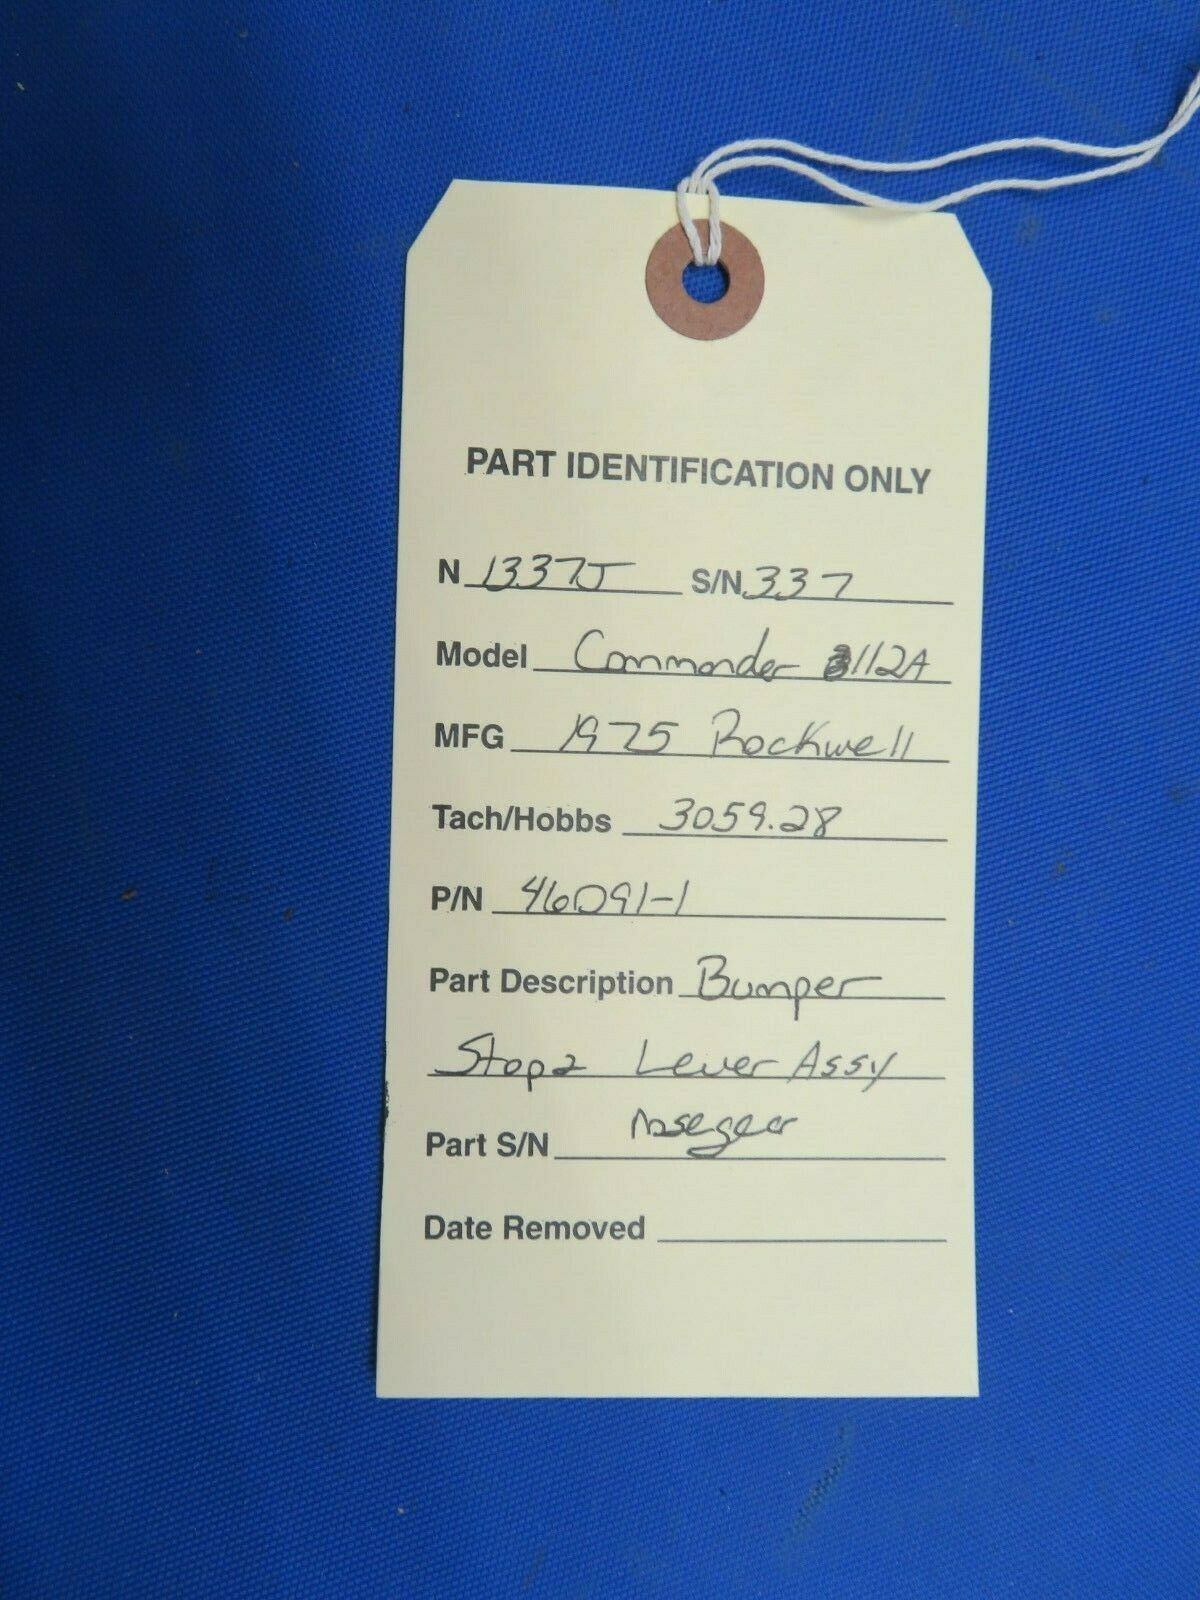 PART IDENTIFICATION ONLY
N 1337J S/N 337
Model Commander 112A
MFG 1975 Rockwell
Tach/Hobbs 3059.28
P/N 46091-1
Part Description Bumper
Stop & Lever Assy
nosegear
Part S/N
Date Removed